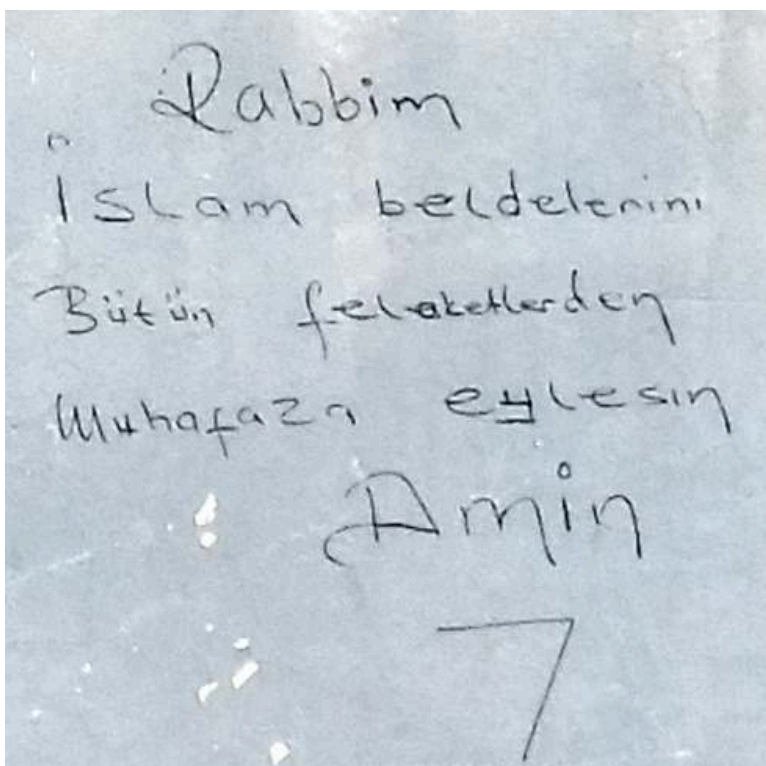 Rabbim
İslam beldelerini
Bütün felaketlerden
Muhafaza eylesin
Amin
7